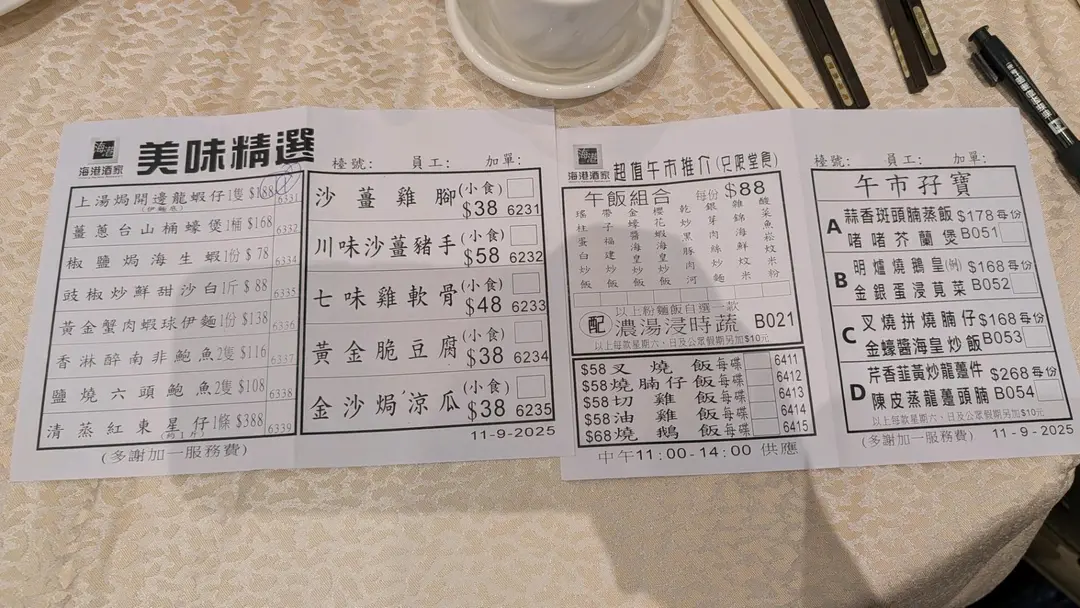 海港酒家
美味精選
檯號: 員工: 加單:
上湯焗開邊龍蝦仔1隻 6331
(伊麵底)
薑蔥台山桶蠔煲1桶 $168 6332
椒鹽焗海生蝦1份 $78 6334
豉椒炒鮮甜沙白1斤 $88 6335
黃金蟹肉蝦球伊麵1份 $138 6336
香淋醉南非鮑魚2隻 $116 6337
鹽燒六頭鮑魚2隻 $108 6338
清蒸紅東星仔1條 $388 6339
沙薑雞腳(小食) $38 6231
川味沙薑豬手(小食) $58 6232
七味雞軟骨(小食) $48 6233
黃金脆豆腐(小食) $38 6234
金沙焗涼瓜(小食) $38 6235
(多謝加一服務費)
11-9-2025
海港酒家
超值午市推介(只限堂食)
檯號: 員工: 加單:
午飯組合 每份 $88
瑤柱蛋白炒飯
帶子福建炒飯
金蠔醬海皇炒飯
櫻花蝦海皇炒飯
乾炒黑豚肉河
銀芽肉絲炒麵
雜錦海鮮炆米
酸菜魚崧炆米粉
以上粉麵飯自選一款
配 濃湯浸時蔬 B021
以上每款星期六、日及公眾假期另加$10元
$58 叉燒飯 每碟 6411
$58 燒腩仔飯 每碟 6412
$58 切雞飯 每碟 6413
$58 油雞飯 每碟 6414
$68 燒鵝飯 每碟 6415
中午11:00-14:00 供應
午市孖寶
A 蒜香斑頭腩蒸飯 $178 每份
啫啫芥蘭煲 B051
B 明爐燒鵝皇(例) $168 每份
金銀蛋浸莧菜 B052
C 叉燒拼燒腩仔 $168 每份
金蠔醬海皇炒飯 B053
D 芹香韮黃炒龍躉件 $268 每份
陳皮蒸龍躉頭腩 B054
以上每款星期六、日及公眾假期另加$10元
(多謝加一服務費) 11-9-2025